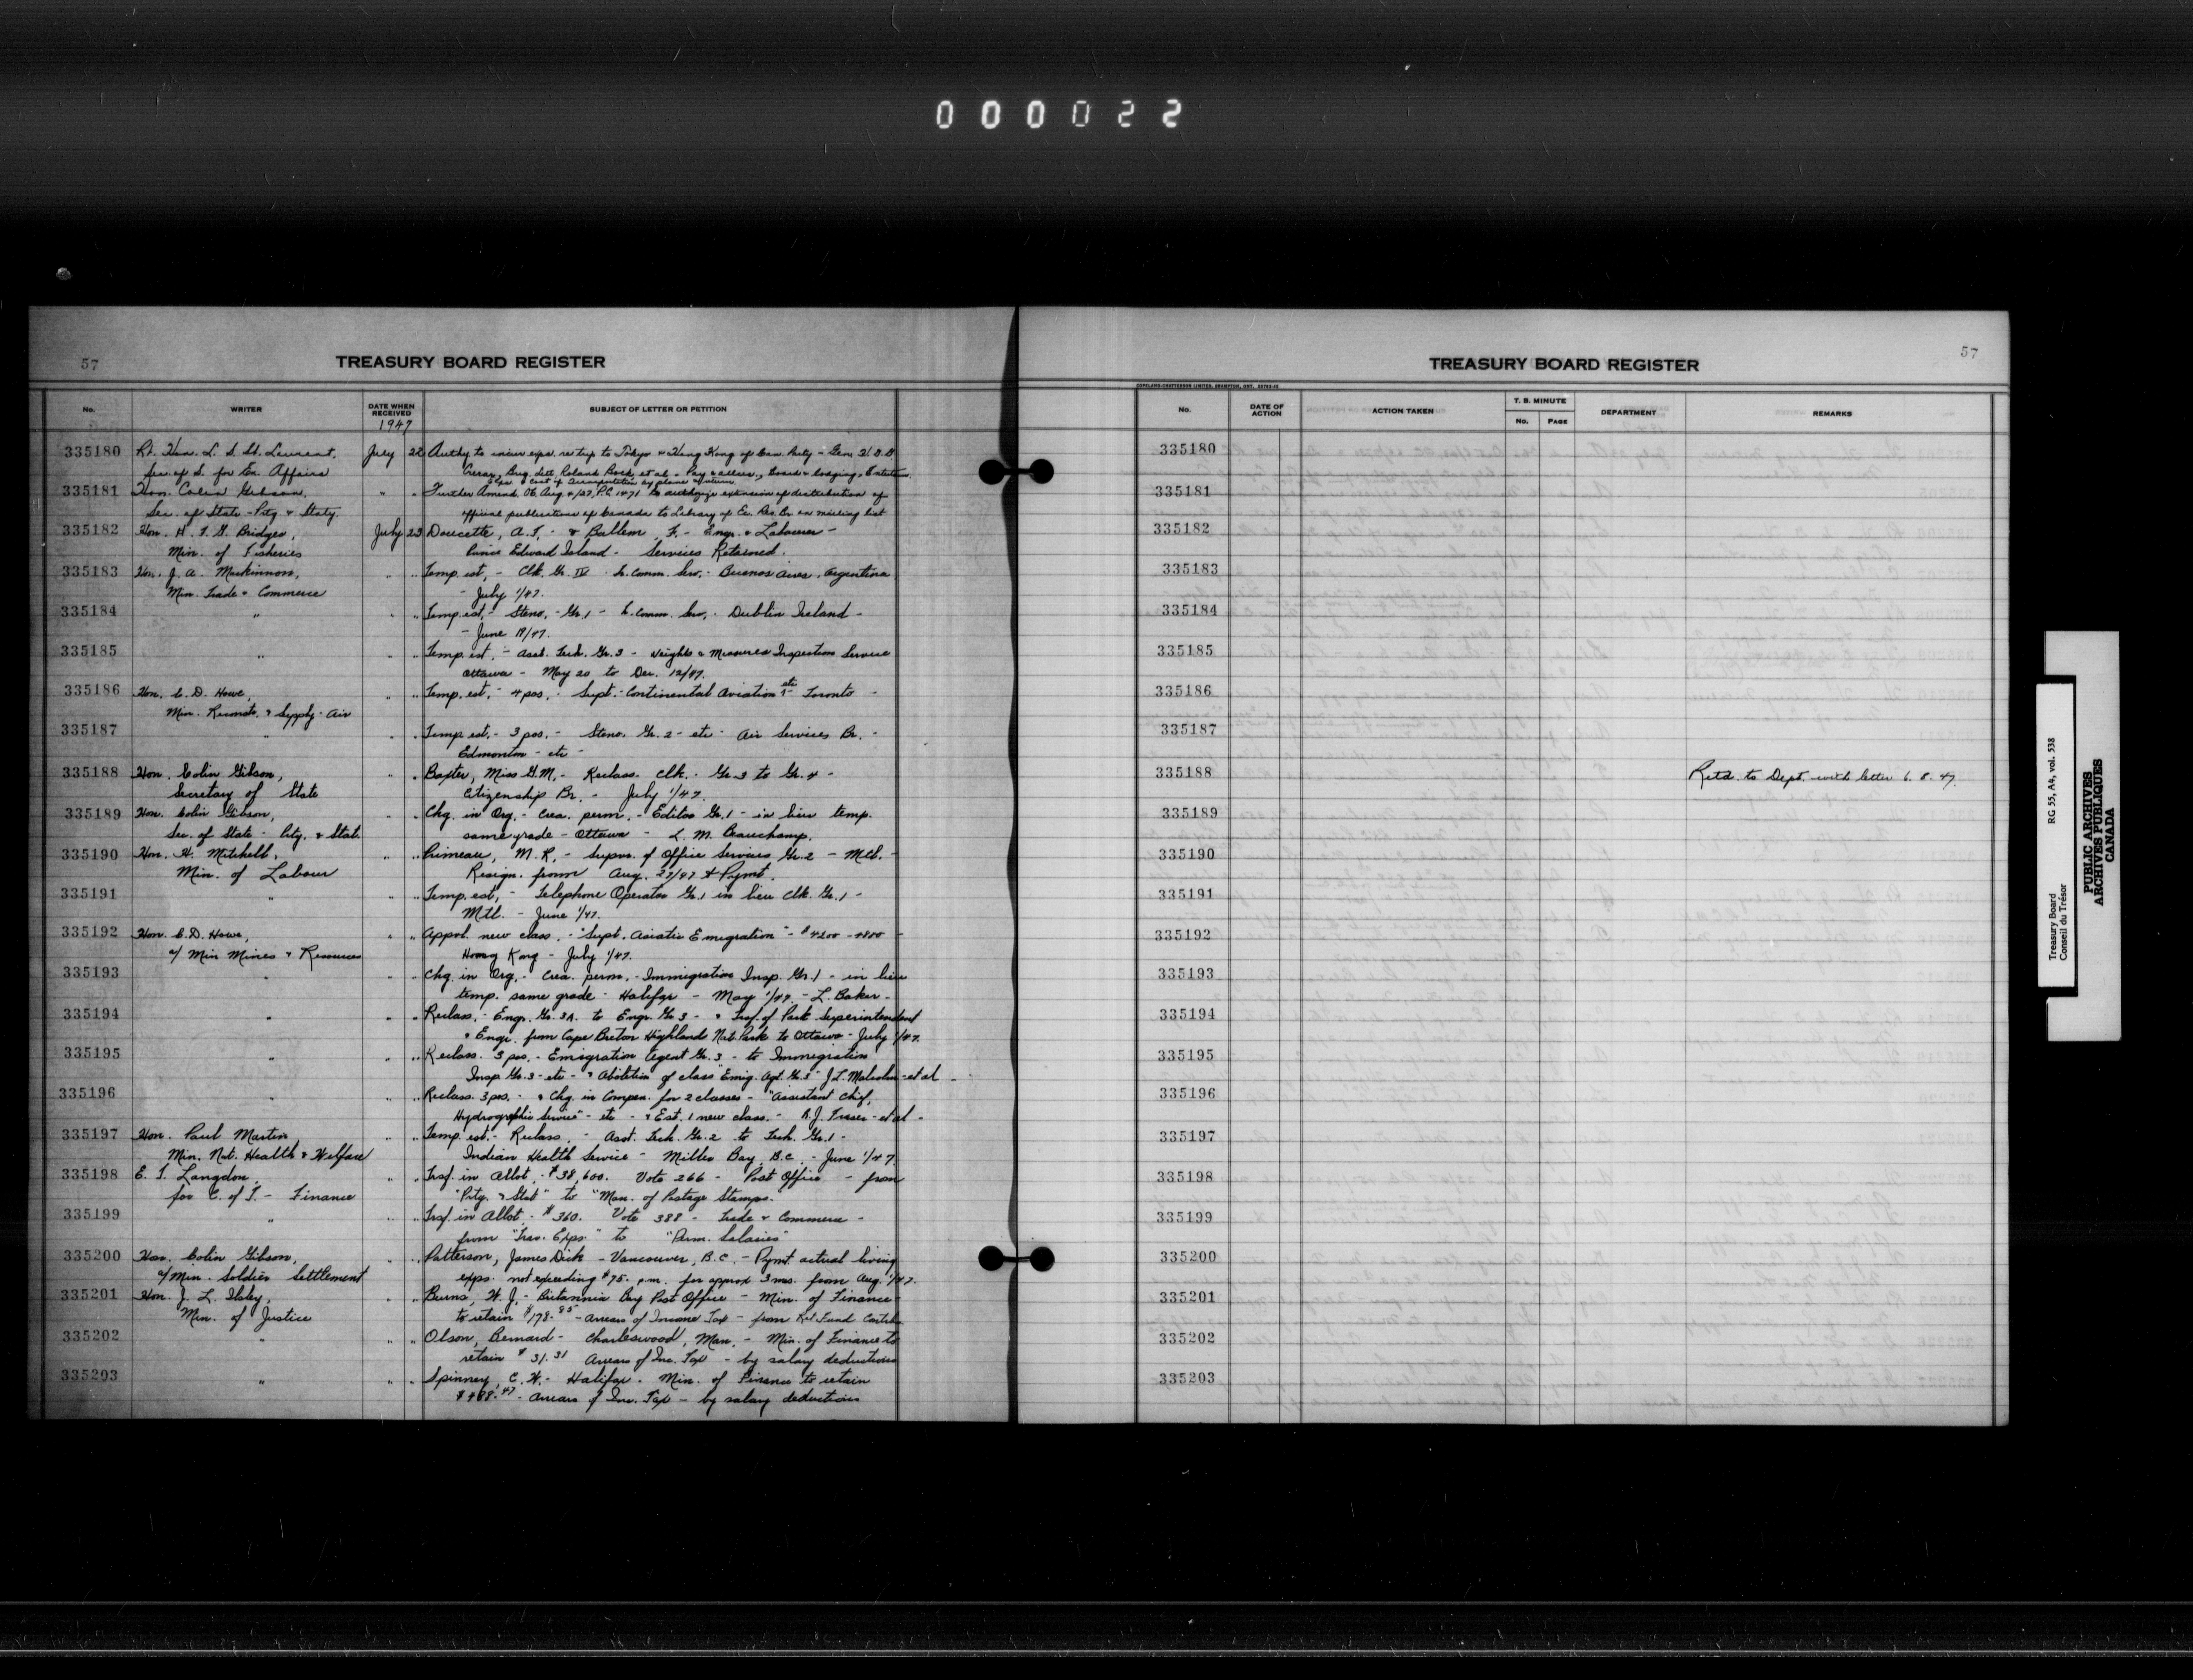 000022
57
TREASURY BOARD REGISTER
No. WRITER DATE WHEN RECEIVED SUBJECT OF LETTER OR PETITION
1947
335180 Rt. Hon. L. S. St. Laurent, July 22 Authy. to incur exps. re trip to Tokyo & Hong Kong of Can. Party - Gen. H. D. G.
Sec. of S. for Ex. Affairs Crerar, Brig. et al - Pay & allces., Board & lodging,
& cost of transportation by plane & return.
335181 Hon. Colin Gibson, " " Further Amend. P.C. 1471 to authorize extension of distribution of
Sec. of State - Ptg. & Staty. official publications of Canada to Library of on mailing list
335182 Hon. H. F. G. Bridges, July 23 Doucette, A. F. - & Ballem, F. - Engr. & Labourer -
Min. of Fisheries Prince Edward Island - Services Retained.
335183 Hon. J. A. Mackinnon, " " Temp. est. - Clk. Gr. IV - Comm. Serv. - Buenos Aires, Argentina
Min. Trade & Commerce - July 1/47.
335184 " " " Temp. est. - Steno. - Gr. 1 - Comm. Serv. - Dublin Ireland -
- June 19/47.
335185 " " " Temp. est. - Asst. Tech. Gr. 3 - Weights & Measures Inspection Service
Ottawa - May 20 to Dec. 12/47.
335186 Hon. C. D. Howe, " " Temp. est. - 4 pos. - Supt. - Continental Aviation - etc - Toronto -
Min. Reconstr. & Supply - Air
335187 " " " Temp. est. - 3 pos. - Steno. Gr. 2 - etc - Air Services Br. -
Edmonton - etc -
335188 Hon. Colin Gibson, " " Baxter, Miss G. M. - Reclass. Clk. - Gr. 3 to Gr. 4 -
Secretary of State Citizenship Br. - July 1/47.
335189 Hon. Colin Gibson, " " Chg. in Org. - Crea. perm. - Editor Gr. 1 - in lieu temp.
Sec. of State - Ptg. & Stat. same grade - Ottawa - L. M. Beauchamp.
335190 Hon. H. Mitchell, " " Primeau, M. R. - Supvr. of Office Services Gr. 2 - Mtl. -
Min. of Labour Resign. from Aug. 27/47 & Pymt.
335191 " " " Temp. est. - Telephone Operator Gr. 1 in lieu Clk. Gr. 1 -
Mtl. - June 1/47.
335192 Hon. C. D. Howe, " " Appvl. new class. - "Supt. Asiatic Emigration" - $4200 - 4800 -
a/ Min Mines & Resources Hong Kong - July 1/47.
335193 " " " Chg. in Org. - Crea. perm. - Immigration Insp. Gr. 1 - in lieu
temp. same grade - Halifax - May 1/47. - L. Baker -
335194 " " " Reclass. - Engr. Gr. 3A. to Engr. Gr 3 - & Trsf. of Park Superintendent
& Engr. from Cape Breton Highland Nat. Park to Ottawa - July 1/47.
335195 " " " Reclass. 3 pos. - Emigration Agent Gr. 3 - to Immigration
Insp. Gr. 3 - etc - & Abolition of class "Emig. Agt. Gr. 3" J. L. Malcolm - et al -
335196 " " " Reclass. 3 pos. - & Chg. in Compen. for 2 classes - "Assistant Chief,
Hydrographic Service" - etc - & Est. 1 new class. - R. J. Fraser - et al -
335197 Hon. Paul Martin " " Temp. est. - Reclass. - Asst. Tech. Gr. 2 to Tech. Gr. 1 -
Min. Nat. Health & Welfare Indian Health Service - Miller Bay, B.C. - June 1/47.
335198 E. T. Langdon, " " Trsf. in Allot. - $38,600. Vote 266 - Post Office - from
for C. of T. - Finance "Ptg. & Stat" to "Man. of Postage Stamps."
335199 " " " Trsf. in Allot. - $360. Vote 388 - Trade & Commerce -
from "Trav. Exps." to "Perm. Salaries"
335200 Hon. Colin Gibson, " " Patterson, James Dick - Vancouver, B.C. - Pymt. actual living
a/ Min. Soldier Settlement exps. not exceeding $75. p.m. for approx 3 mos. from Aug. 1/47.
335201 Hon. J. L. Ilsley, " " Burns, W. J. - Britannia Bay Post Office - Min. of Finance
Min. of Justice to retain $178.85 - arrears of Income Tax - from Ret. Fund Contrib.
335202 " " " Olson, Bernard - Charleswood, Man. - Min. of Finance to
retain $31.31 Arrears of Inc. Tax - by salary deductions
335203 " " " Spinney, C. W. - Halifax - Min. of Finance to retain
$488.47 - arrears of Inc. Tax - by salary deductions
57
TREASURY BOARD REGISTER
COPELAND-CHATTERSON LIMITED, BRAMPTON, ONT.
No. DATE OF ACTION ACTION TAKEN T. B. MINUTE No. PAGE DEPARTMENT REMARKS
335180
335181
335182
335183
335184
335185
335186
335187
335188 Retd. to Dept. with letter 6.8.47.
335189
335190
335191
335192
335193
335194
335195
335196
335197
335198
335199
335200
335201
335202
335203
Treasury Board RG 55, A4, vol. 538
Conseil du Trésor
PUBLIC ARCHIVES
ARCHIVES PUBLIQUES
CANADA